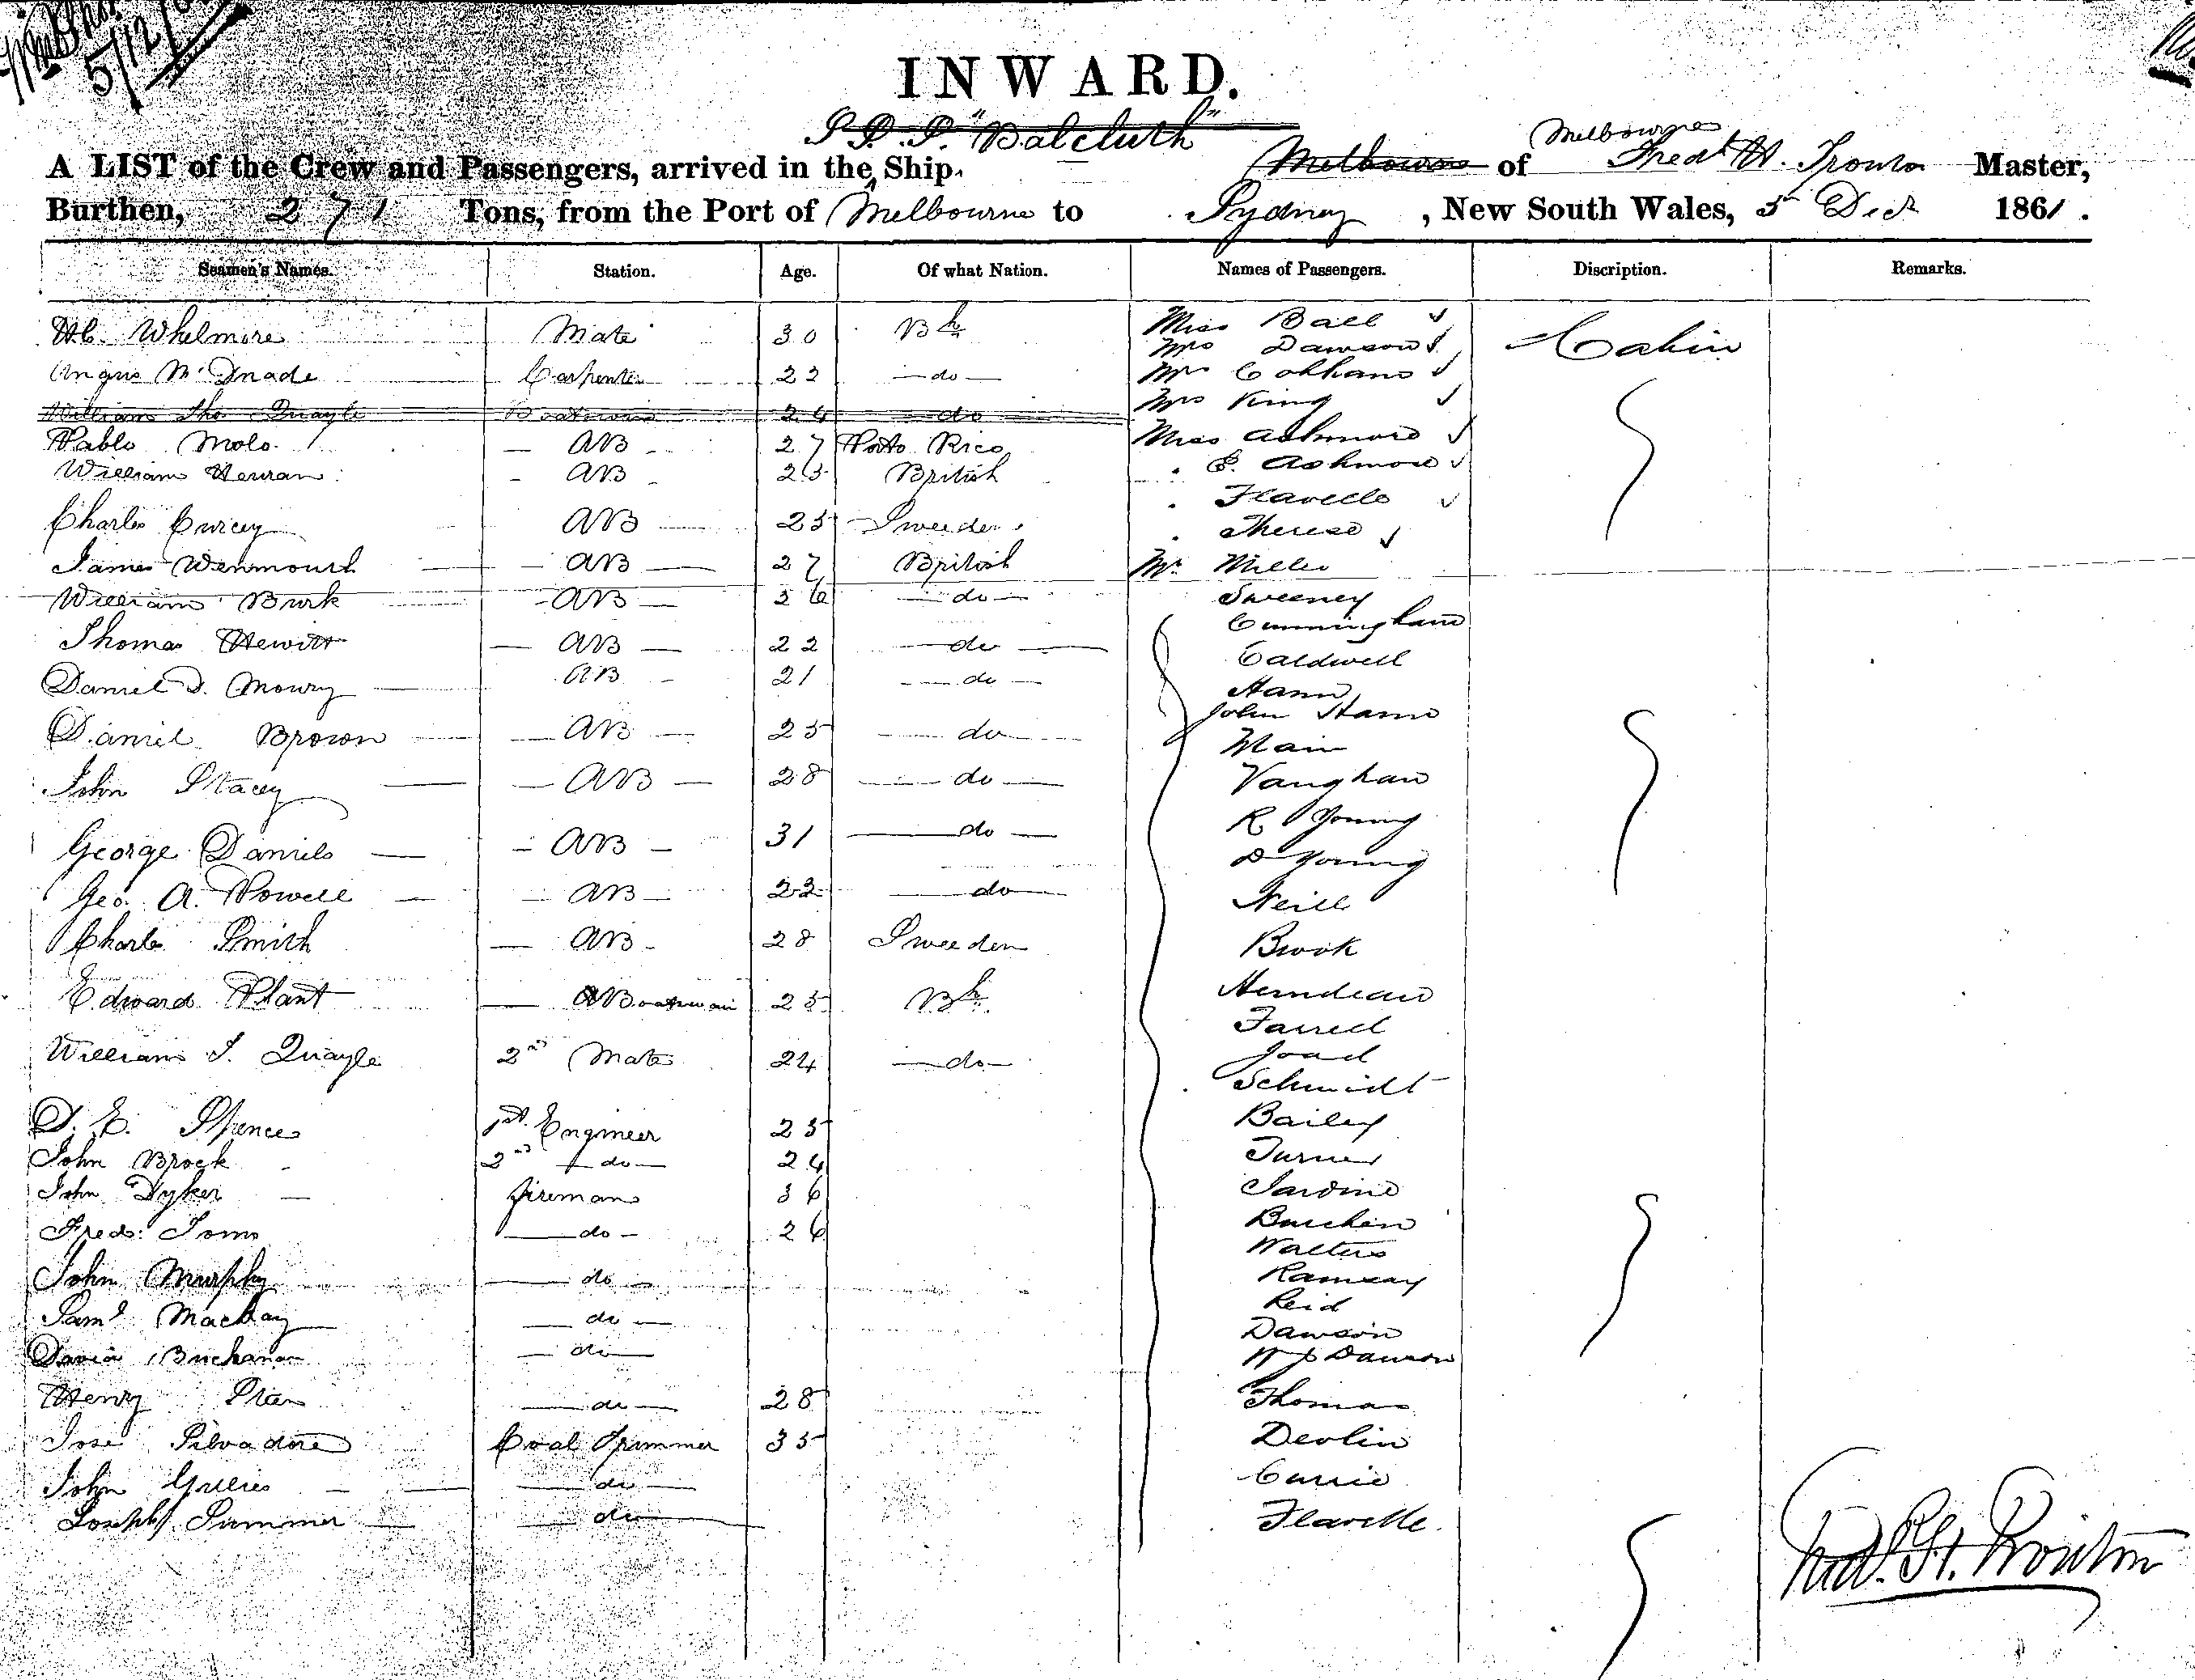 5/12/61
INWARD.
S.S.S. "Balcluth"
Melbourne
A LIST of the Crew and Passengers, arrived in the Ship, Melbourne of Fredk H. Trouton Master,
Burthen, 271 Tons, from the Port of Melbourne to Sydney, New South Wales, 5 Decr 1861.
Seamen's Names. Station. Age. Of what Nation. Names of Passengers. Discription. Remarks.
Whelmore Mate 30 Bh Miss Ball Cabin
Mrs Dawson
Angus Mc Carpenter 22 do Mrs
William Tho Quayle Boatswain 24 do Mrs King
Pablo Molo. AB 27 Porto Rico Miss Ashmore
William AB 25 British E. Ashmore
Flavelle
Charles AB 25 Sweeden Therese
James Wenmouth AB 27 British Mr Miller
William Burk AB 36 do Sweeney
Cunningham
Thomas Hewitt AB 22 do Caldwell
Daniel D. Moury AB 21 do Hann
John Hann
Daniel Brown AB 25 do Main
John Stacey AB 28 do Vaughan
R Young
George Daniels AB 31 do D Young
Geo. A. Powell AB 22 do Neill
Charles Smith AB 28 Sweeden Brook
Edward Plant Boatswain 25 Bh
Farrell
William T. Quayle 2nd Mate 24 do Joad
Schmidt
D. E. Spence 1st Engineer 25 Bailey
John Brock 2nd do 24 Turner
John Dyker fireman 36 Jardine
Fredk Toms do 26
Walters
John Murphy do Ramsay
Reid
Saml Mackay do Dawson
David Buchanan do W J Dawson
Henry do 28 Thomas
Jose Silvadore Coal Trimmer 35 Devlin
John Gillies do Currie
Joseph Summer do Flavelle
Fredk H. Trouton